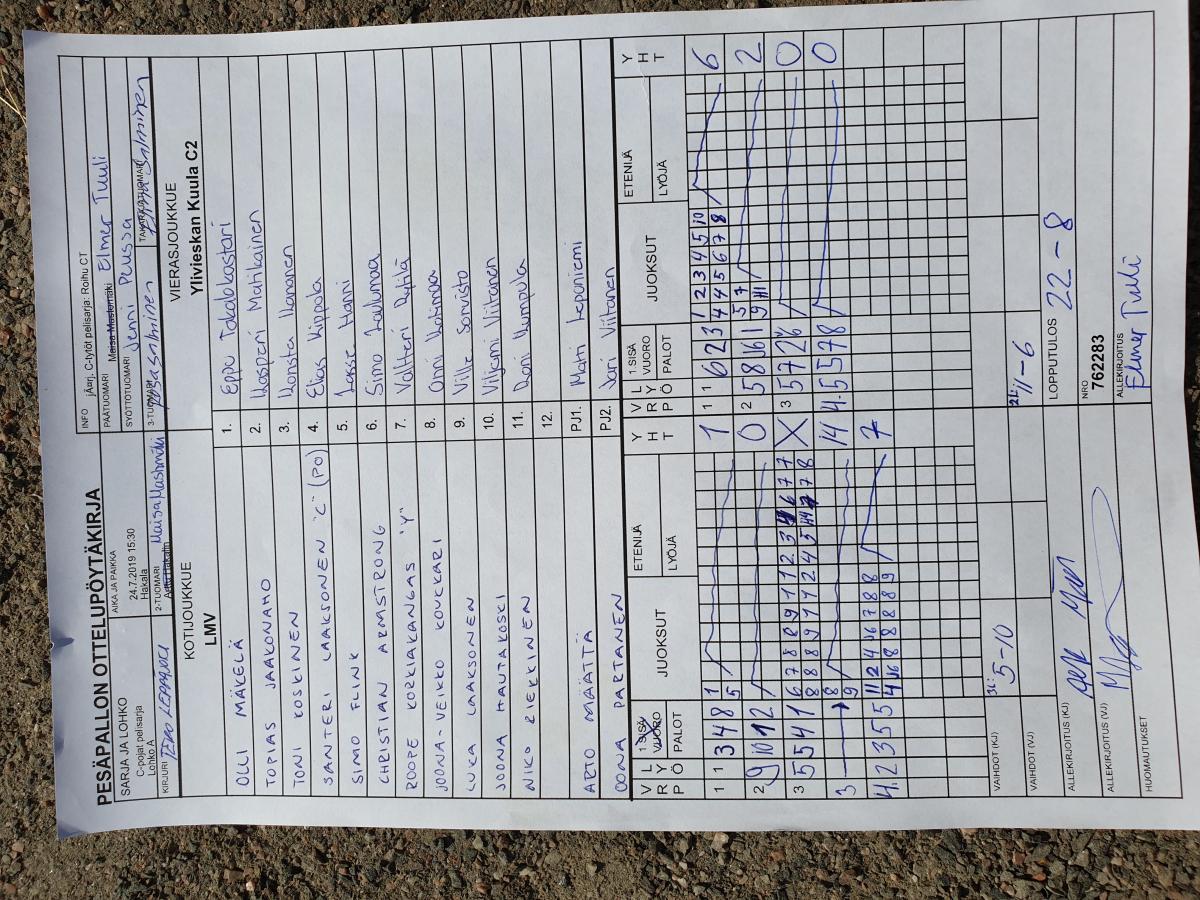 PESÄPALLON OTTELUPÖYTÄKIRJA
SARJA JA LOHKO
C-pojat pelisarja
Lohko A
AIKA JA PAIKKA
24.7.2019 15:30
Hakala
INFO jÄrj. C-tytöt pelisarja: Roihu CT
PÄÄTUOMARI Elmer Tuuli
SYÖTTÖTUOMARI Venni Peussa
KIRJURI
2-TUOMARI Maisa Mastomäki
3-TUOMARI
TAKARAJATUOMARI
KOTIJOUKKUE
LMV
VIERASJOUKKUE
Ylivieskan Kuula C2
OLLI MÄKELÄ 1. Eppu Takalokastari
TOPIAS JAAKONAHO 2. Kasperi Matikainen
TONI KOSKINEN 3. Konsta Kananen
SANTERI LAAKSONEN "C" (PO) 4. Elias Kippola
SIMO FLINK 5. Lasse Hanni
CHRISTIAN ARMSTRONG 6. Simo Laulumaa
ROOPE KORKIAKANGAS "Y" 7. Valtteri Rytilä
JOONA-VEIKKO KOUKKARI 8. Onni
LUKA LAAKSONEN 9. Ville Sorvisto
JOONA HAUTAKOSKI 10. Viljami Viitanen
NIKO RIEKKINEN 11. Roni Kumpula
12.
ARTO MÄÄTTÄ PJ1. Mati Leponiemi
OONA PARTANEN PJ2. Jari Viitanen
V R P L Y Ö 1.SISÄ VUORO PALOT JUOKSUT ETENIJÄ LYÖJÄ Y H T V R P L Y Ö 1.SISÄ VUORO PALOT JUOKSUT ETENIJÄ LYÖJÄ Y H T
1 1 3 4 8 1 1 1 1 6 2 3 1 2 3 4 5 10 6
5 4 4 5 6 7 8
2 9 10 12 0 2 5 8 16 1 5 7 2
3 5 5 4 1 6 7 8 8 9 1 1 2 3 4 6 7 7 X 3 5 7 2 0
8 8 8 9 1 1 2 4 5
3 8 14 4. 5 5 7 8 0
9
4. 2 3 5 5 11 2 4 6 7 8 8 7
4 6 8 8 8 8 9
VAIHDOT (KJ) 3L: 5-10 2L: 11-6
VAIHDOT (VJ)
ALLEKIRJOITUS (KJ) LOPPUTULOS 22-8
ALLEKIRJOITUS (VJ) NRO
762283
HUOMAUTUKSET ALLEKIRJOITUS
Elmer Tuuli